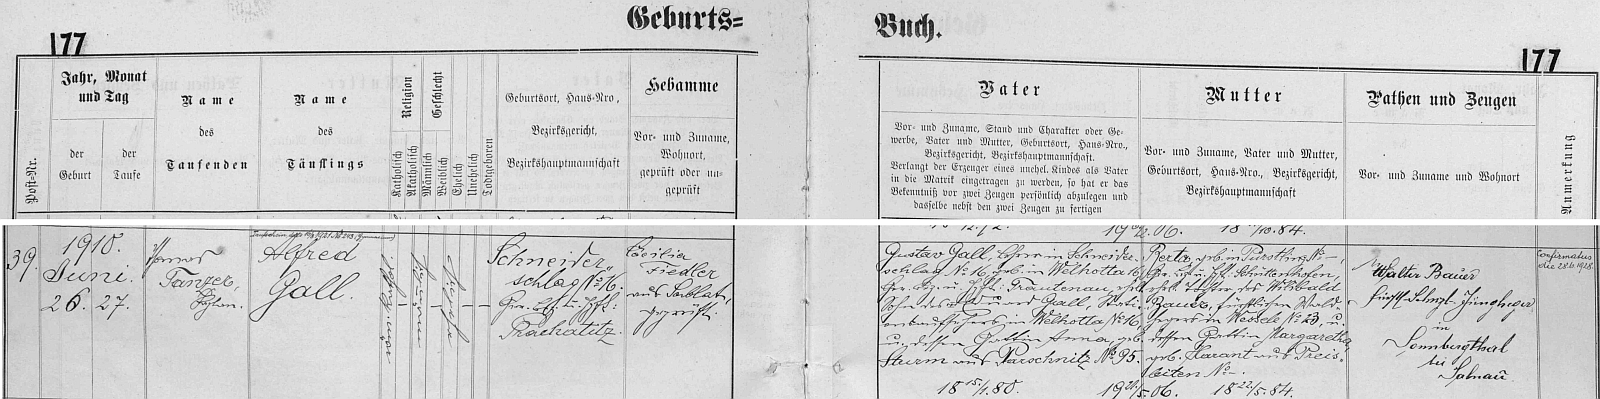 Geburts=
Buch.
177
177
Post=Nr.
Jahr, Monat
und Tag
der
Geburt
der
Taufe
Name
des
Taufenden
Name
des
Täuflings
Religion
Katholisch
Akatholisch
Geschlecht
Männlich
Weiblich
Ehelich
Unehelich
Todtgeboren
Geburtsort, Haus=Nro,
Bezirksgericht,
Bezirkshauptmannschaft
Hebamme
Vor= und Zuname,
Wohnort,
geprüft oder un=
geprüft
Vater
Vor= und Zuname, Stand und Charakter oder Ge=
werbe, Vater und Mutter, Geburtsort, Haus=Nro.,
Bezirksgericht, Bezirkshauptmannschaft.
Verlangt der Erzeuger eines unehel. Kindes als Vater
in die Matrik eingetragen zu werden, so hat er das
Bekenntniß vor zwei Zeugen persönlich abzulegen und
dasselbe nebst den zwei Zeugen zu fertigen
Mutter
Vor= und Zuname, Vater und Mutter,
Geburtsort, Haus=Nro., Bezirksgericht,
Bezirkshauptmannschaft
Pathen und Zeugen
Vor= und Zuname und Wohnort
Anmerkung
39.
1910.
Juni.
26. 27.
Thomas
Tanzer,
Alfred
Gall.
Schneider=
schlag No 16.
Prachatitz.
Cäcilia
Fiedler
aus Sablat,
geprüft.
Gustav Gall, Lehrer in Schneider=
schlag No 16, geb. in Welhotta 16,
Trautenau,
Sohn des Gall,
in Welhotta No 16,
u. dessen Gattin Anna, geb.
Sturm aus Parschnitz No 95.
18 15/1. 80.
Berta, geb. in
Schüttenhofen,
Tochter des Wilibald
Bauer, fürstlichen Wald=
hegers in Wessele No 23, u.
dessen Gattin Margaretha,
geb. Harant aus Preis=
leiten No –.
06. 18 22/5. 84.
Walter Bauer
fürstl. Jungheger
in
Sonnbergthal
bei
Salnau.
Confirmatus
die 28.6.1928.